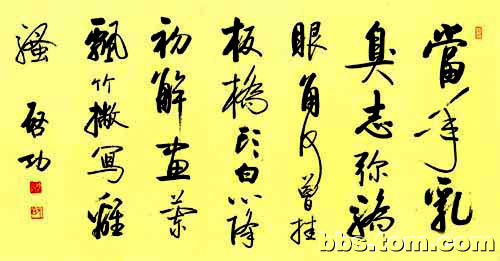 當年乳
臭志弥驕
眼角何曾挂
板橋頭白心降
初解畫蘭
飄竹撇寫離
騷
啓功
bbs.tom.com